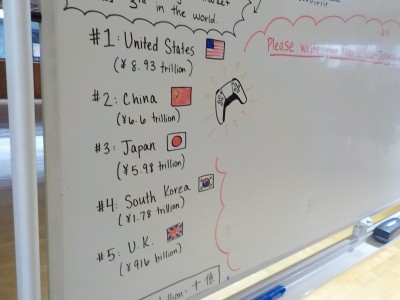 3rd in the world.
#1: United States
(¥8.93 trillion)
#2: China
(¥6.6 trillion)
#3: Japan
(¥5.98 trillion)
#4: South Korea
(¥1.78 trillion)
#5: U.K.
(¥916 billion)
Please write
billion = 十億